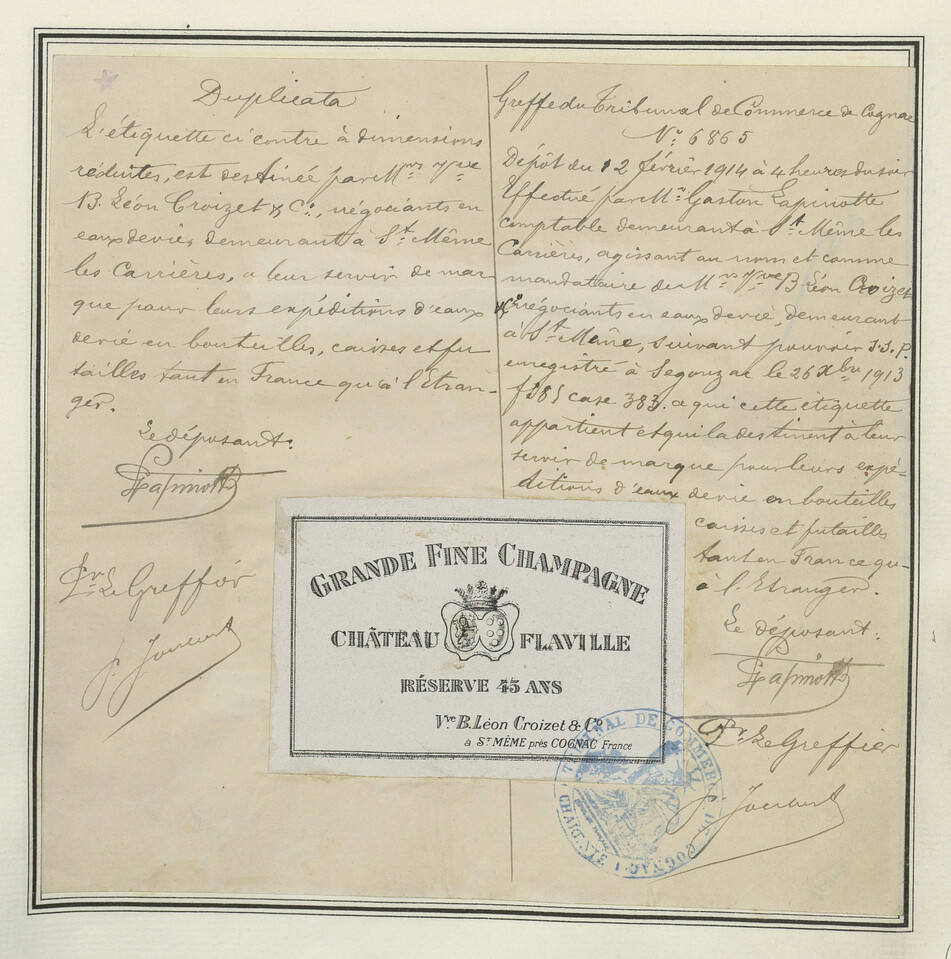 Duplicata
L'étiquette ci contre à dimensions
réduites, est destinée par Mrs Vve
B. Léon Croizet & Co, négociants en
eaux de vie, demeurant à St Même
les Carrières, a leur servir de mar
que pour leurs expéditions d'eaux
de vie en bouteilles, caisses et fu
tailles tant en France qu'à l'Etran-
ger.
Le déposant:
GLapinotte
Pr Le Greffier
Greffe du Tribunal de Commerce de Cognac
No 6865
Dépôt du 12 février 1914 à 4 heures du soir
Effectué par Mr Gaston Lapinotte
comptable demeurant à St Même les
Carrières, agissant au nom et comme
mandataire de Mrs Vve B Léon Croizet
& Co négociants en eaux de vie, demeurant
à St Même, suivant pouvoir S.S.P.
enregistré à Segonzac le 26 Xbre 1913
fo 85 case 383. a qui cette etiquette
appartient et qui la destinent à leur
servir de marque pour leurs expé-
ditions d'eaux de vie en bouteilles
caisses et futailles
tant en France qu-
à l'Etranger.
Le déposant:
GLapinotte
Pr Le Greffier
GRANDE FINE CHAMPAGNE
CHÂTEAU FLAVILLE
RÉSERVE 45 ANS
Vve B. Léon Croizet & Co
à St MÊME près COGNAC France
TRIBUNAL DE COMMERCE DE COGNAC
CHARENTE